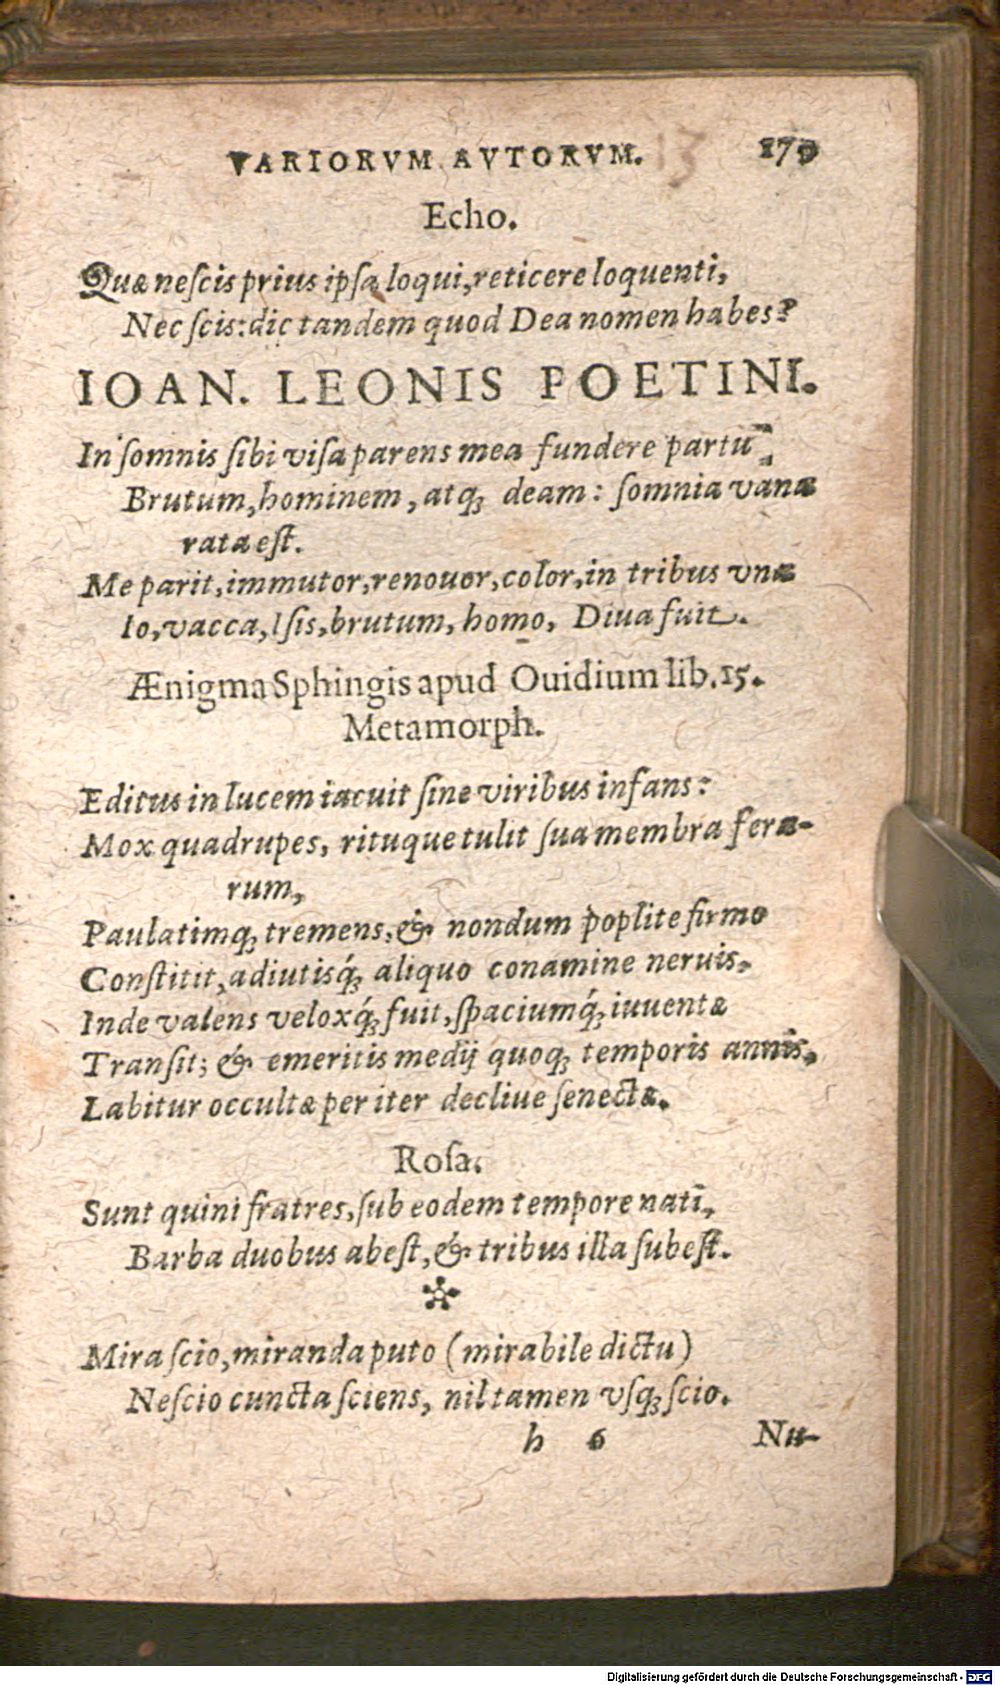 VARIORVM AVTORVM. 179
Echo.
Quæ neſcis prius ipſa loqui, reticere loquenti,
Nec ſcis: dic tandem quod Dea nomen habes?
IOAN. LEONIS POETINI.
In ſomnis ſibi viſa parens mea fundere partū
Brutum, hominem, atq; deam: ſomnia vana
rata eſt.
Me parit, immutor, renouor, color, in tribus vna
Io, vacca, Iſis, brutum, homo, Diua fuit.
Ænigma Sphingis apud Ouidium lib. 15.
Metamorph.
Editus in lucem iacuit ſine viribus infans:
Mox quadrupes, rituque tulit ſua membra fera-
rum,
Paulatimq; tremens, & nondum poplite firmo
Conſtitit, adiutisq́; aliquo conamine neruis.
Inde valens veloxq́; fuit, ſpaciumq́; iuuentæ
Tranſit; & emeritis medij quoq; temporis annis,
Labitur occultæ per iter decliue ſenectæ.
Roſa.
Sunt quini fratres, ſub eodem tempore nati,
Barba duobus abeſt, & tribus illa ſubeſt.
Mira ſcio, miranda puto (mirabile dictu)
Neſcio cuncta ſciens, nil tamen vſq; ſcio.
h 6 Nu-
Digitalisierung gefördert durch die Deutsche Forschungsgemeinschaft - DFG